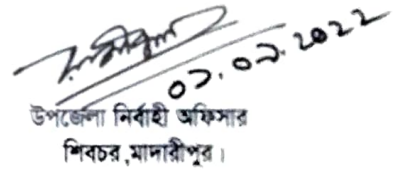 ০১.০৯.২০২২
উপজেলা নির্বাহী অফিসার
শিবচর, মাদারীপুর।